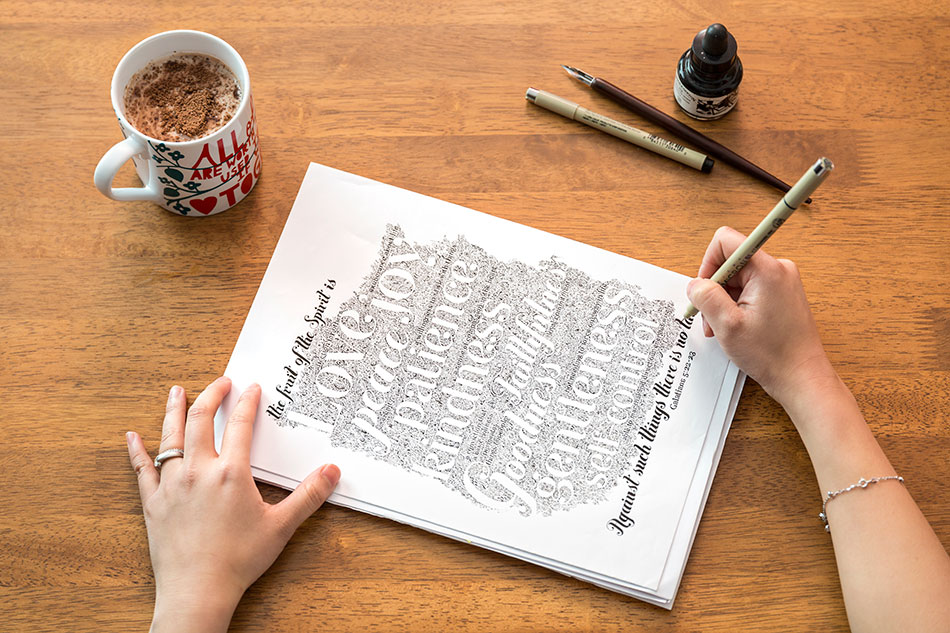 ALL
ARE WORTH
USED
TOG
the fruit of the Spirit is
Love, joy,
peace,
patience,
kindness
Goodness, faithfulness
gentleness
self control
Against such things there is no
Galatians 5:22-23